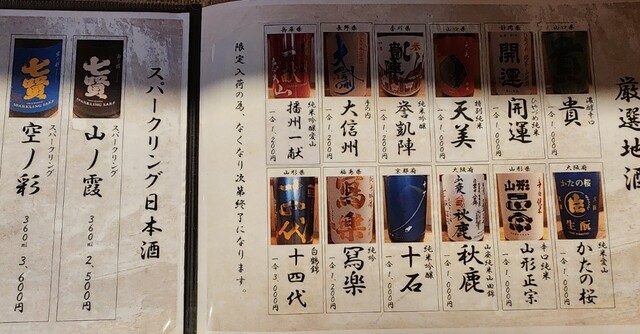 厳選地酒
山口県
貴
濃醇辛口
貴
一合 1,000円
静岡県
開運
ひやづめ純米
開運
一合 1,000円
山口県
特別純米
天美
一合 1,200円
香川県
凱陣
純米吟醸
誉凱陣
一合 1,200円
長野県
大信州
大信州
一合 1,200円
兵庫県
純米吟醸愛山
播州一献
一合 1,200円
大阪府
かたの桜
生酛
純米愛山
かたの桜
一合 1,000円
山形県
山形
正宗
辛口純米
山形正宗
一合 1,000円
大阪府
秋鹿
山廃純米山田錦
秋鹿
一合 1,000円
京都府
純米吟醸
十石
一合 1,200円
福島県
寫楽
純吟
冩楽
一合 1,200円
山形県
十四代
白鶴錦
十四代
一合 3,000円
限定入荷の為、なくなり次第終了になります。
スパークリング日本酒
七賢
SPARKLING SAKE
スパークリング
山ノ霞
360ml 2,500円
七賢
SPARKLING SAKE
スパークリング
空ノ彩
360ml 3,600円